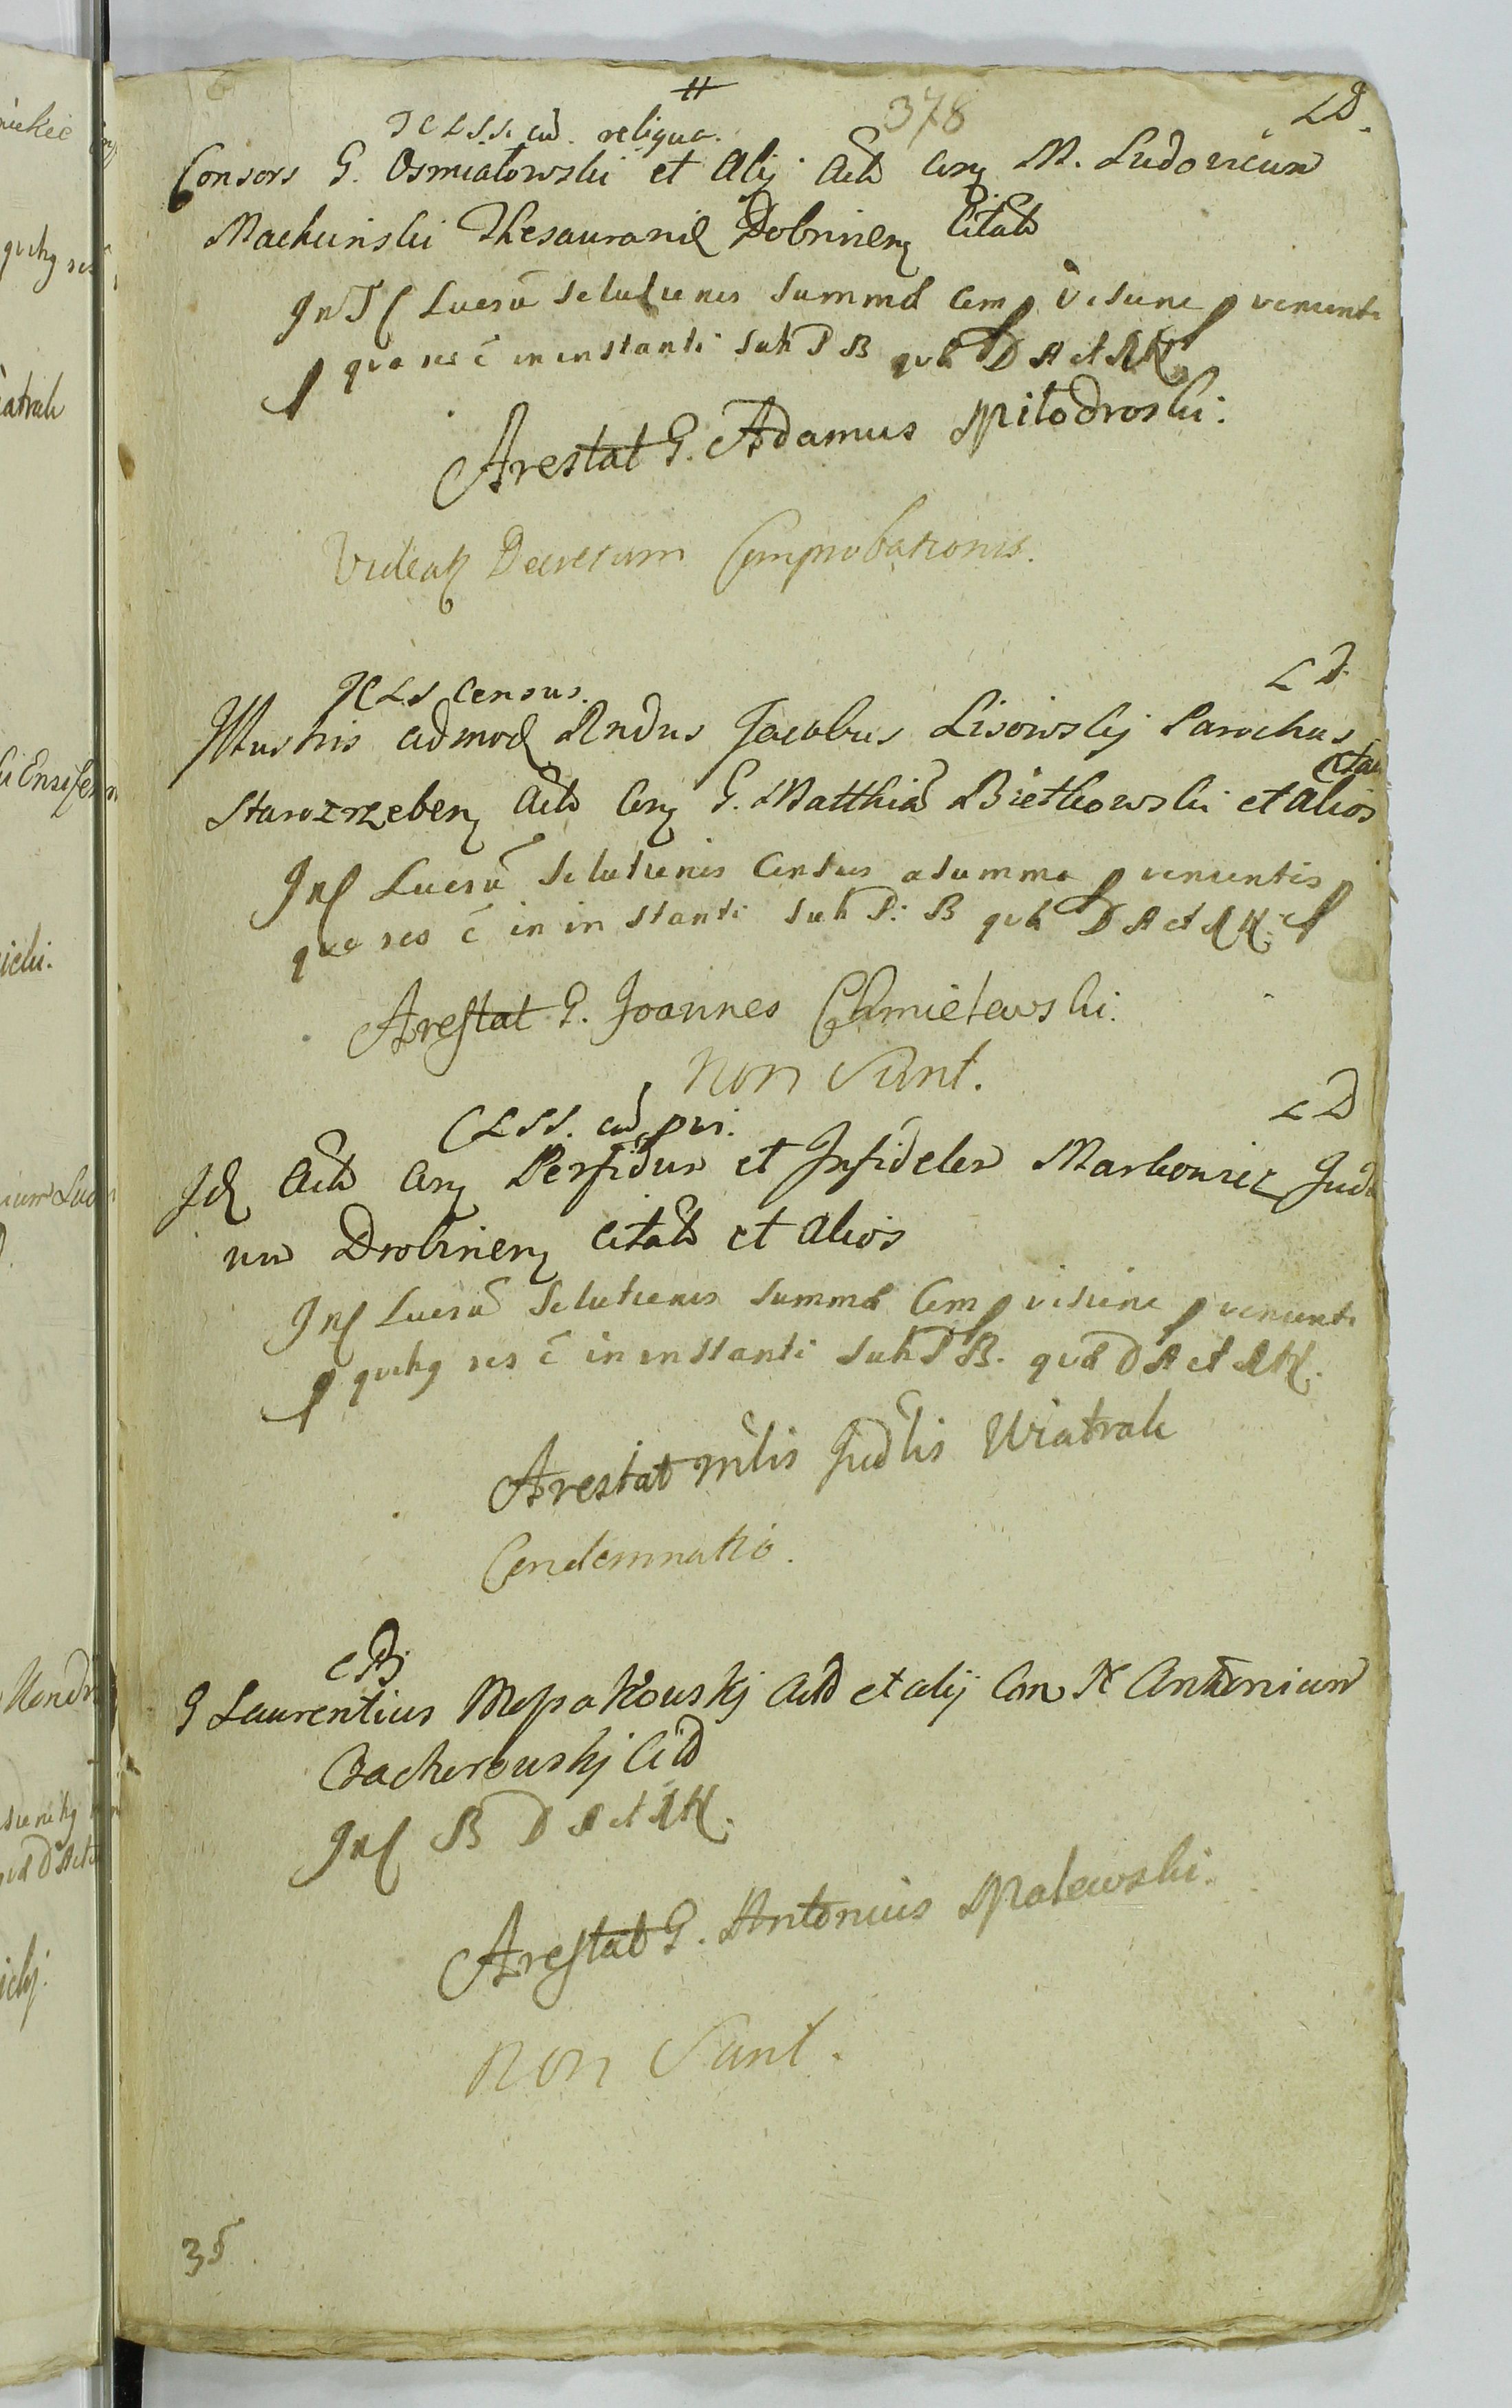 378
LD.
T C L S S. cũ. reliqua.
Consors G. Osmiałowski et Alij Actõ Con M. Ludovicum
Machcinski Thesaurariũ Dobrinen Citatõ
In T C Lucrũ Solutionis Summã Comp visione p venient
p qua res ẽ in instanti Sub P B qud D A et R H
Arestat G. Adamus Miłodroski.
Videat Decretum Comprobationis.
T C L S Census.
L D.
Illustris admod Rndus Jacobus Lisowskj Parochus
Starozrzeben Actõ Con G. Matthiã Bietkowski et Alios
Citato
In C Lucrũ Solutionis Census a summa p venientis p
qua res ẽ in in stanti Sub P. B qud D A et R H.
Arestat G. Joannes Chmielewski.
Non Sunt.
C L S S. cũ pri.
L D
Id Actõ Con Perfidum et Infidelem Markowicz Judæ
um Drobinen Citatõ et Alios
In C Lucrũ Solutionis Summã Comp visione p venient
p qutq res ẽ in instanti Sub P B. qud D A et R H.
Arestat Mlis Judlis Wiatrak
Condemnatio.
G Laurentius Actõ et alij Con N Antonium
Cit
In C B D A et R H.
Arestat G. Antonius Malewski.
Non Sunt.
35